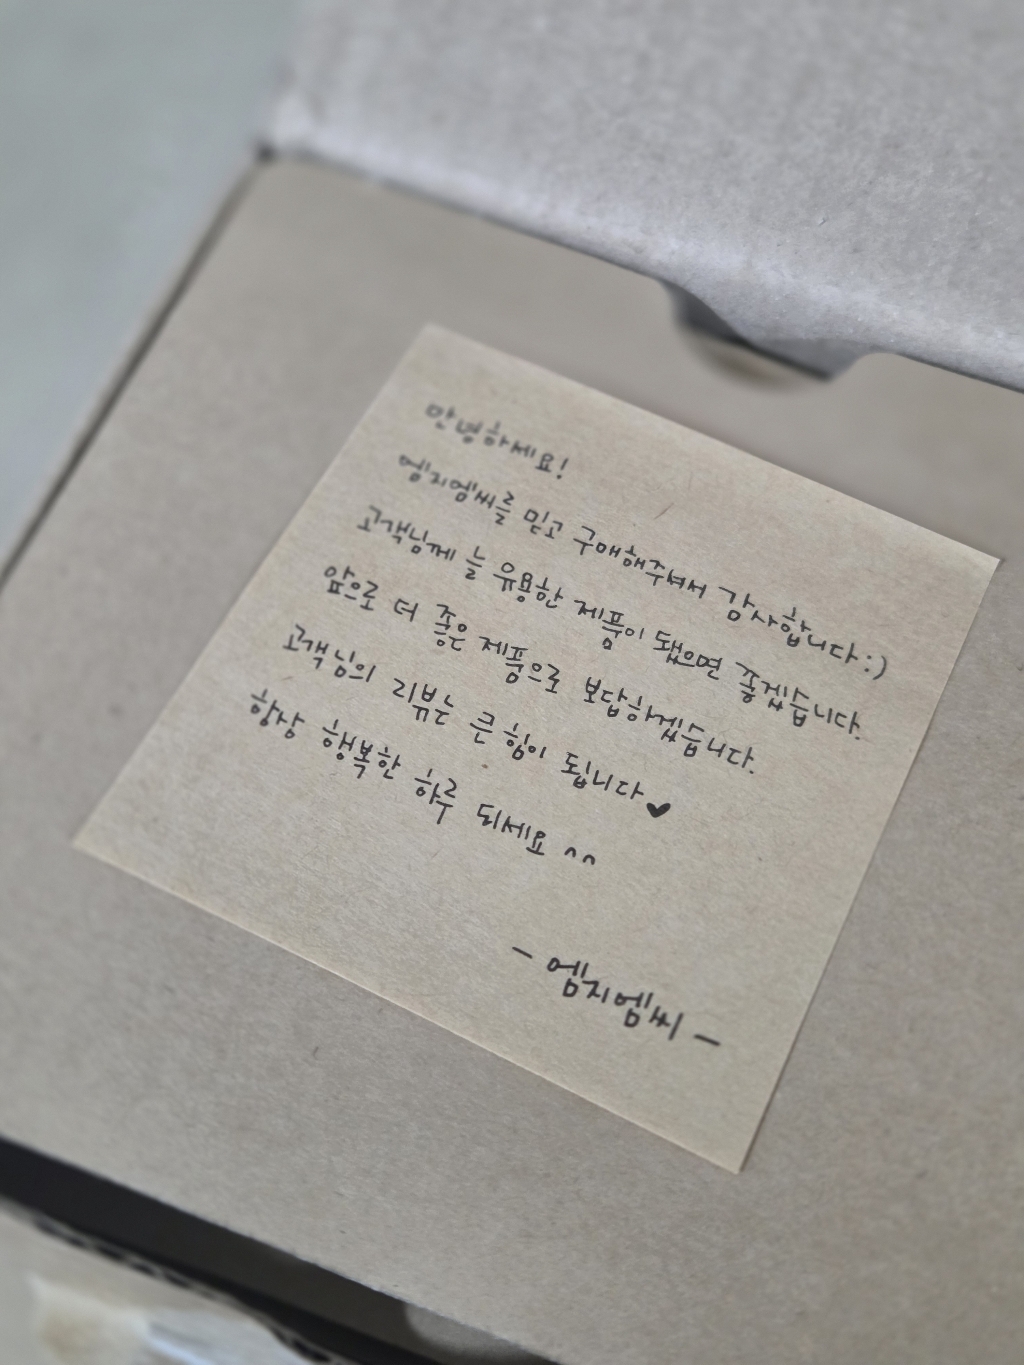 안녕하세요!
엠지엠씨를 믿고 구매해주셔서 감사합니다:)
고객님께 늘 유용한 제품이 됐으면 좋겠습니다.
앞으로 더 좋은 제품으로 보답하겠습니다.
고객님의 리뷰는 큰 힘이 됩니다♥
항상 행복한 하루 되세요 ᵔᵔ
- 엠지엠씨 -